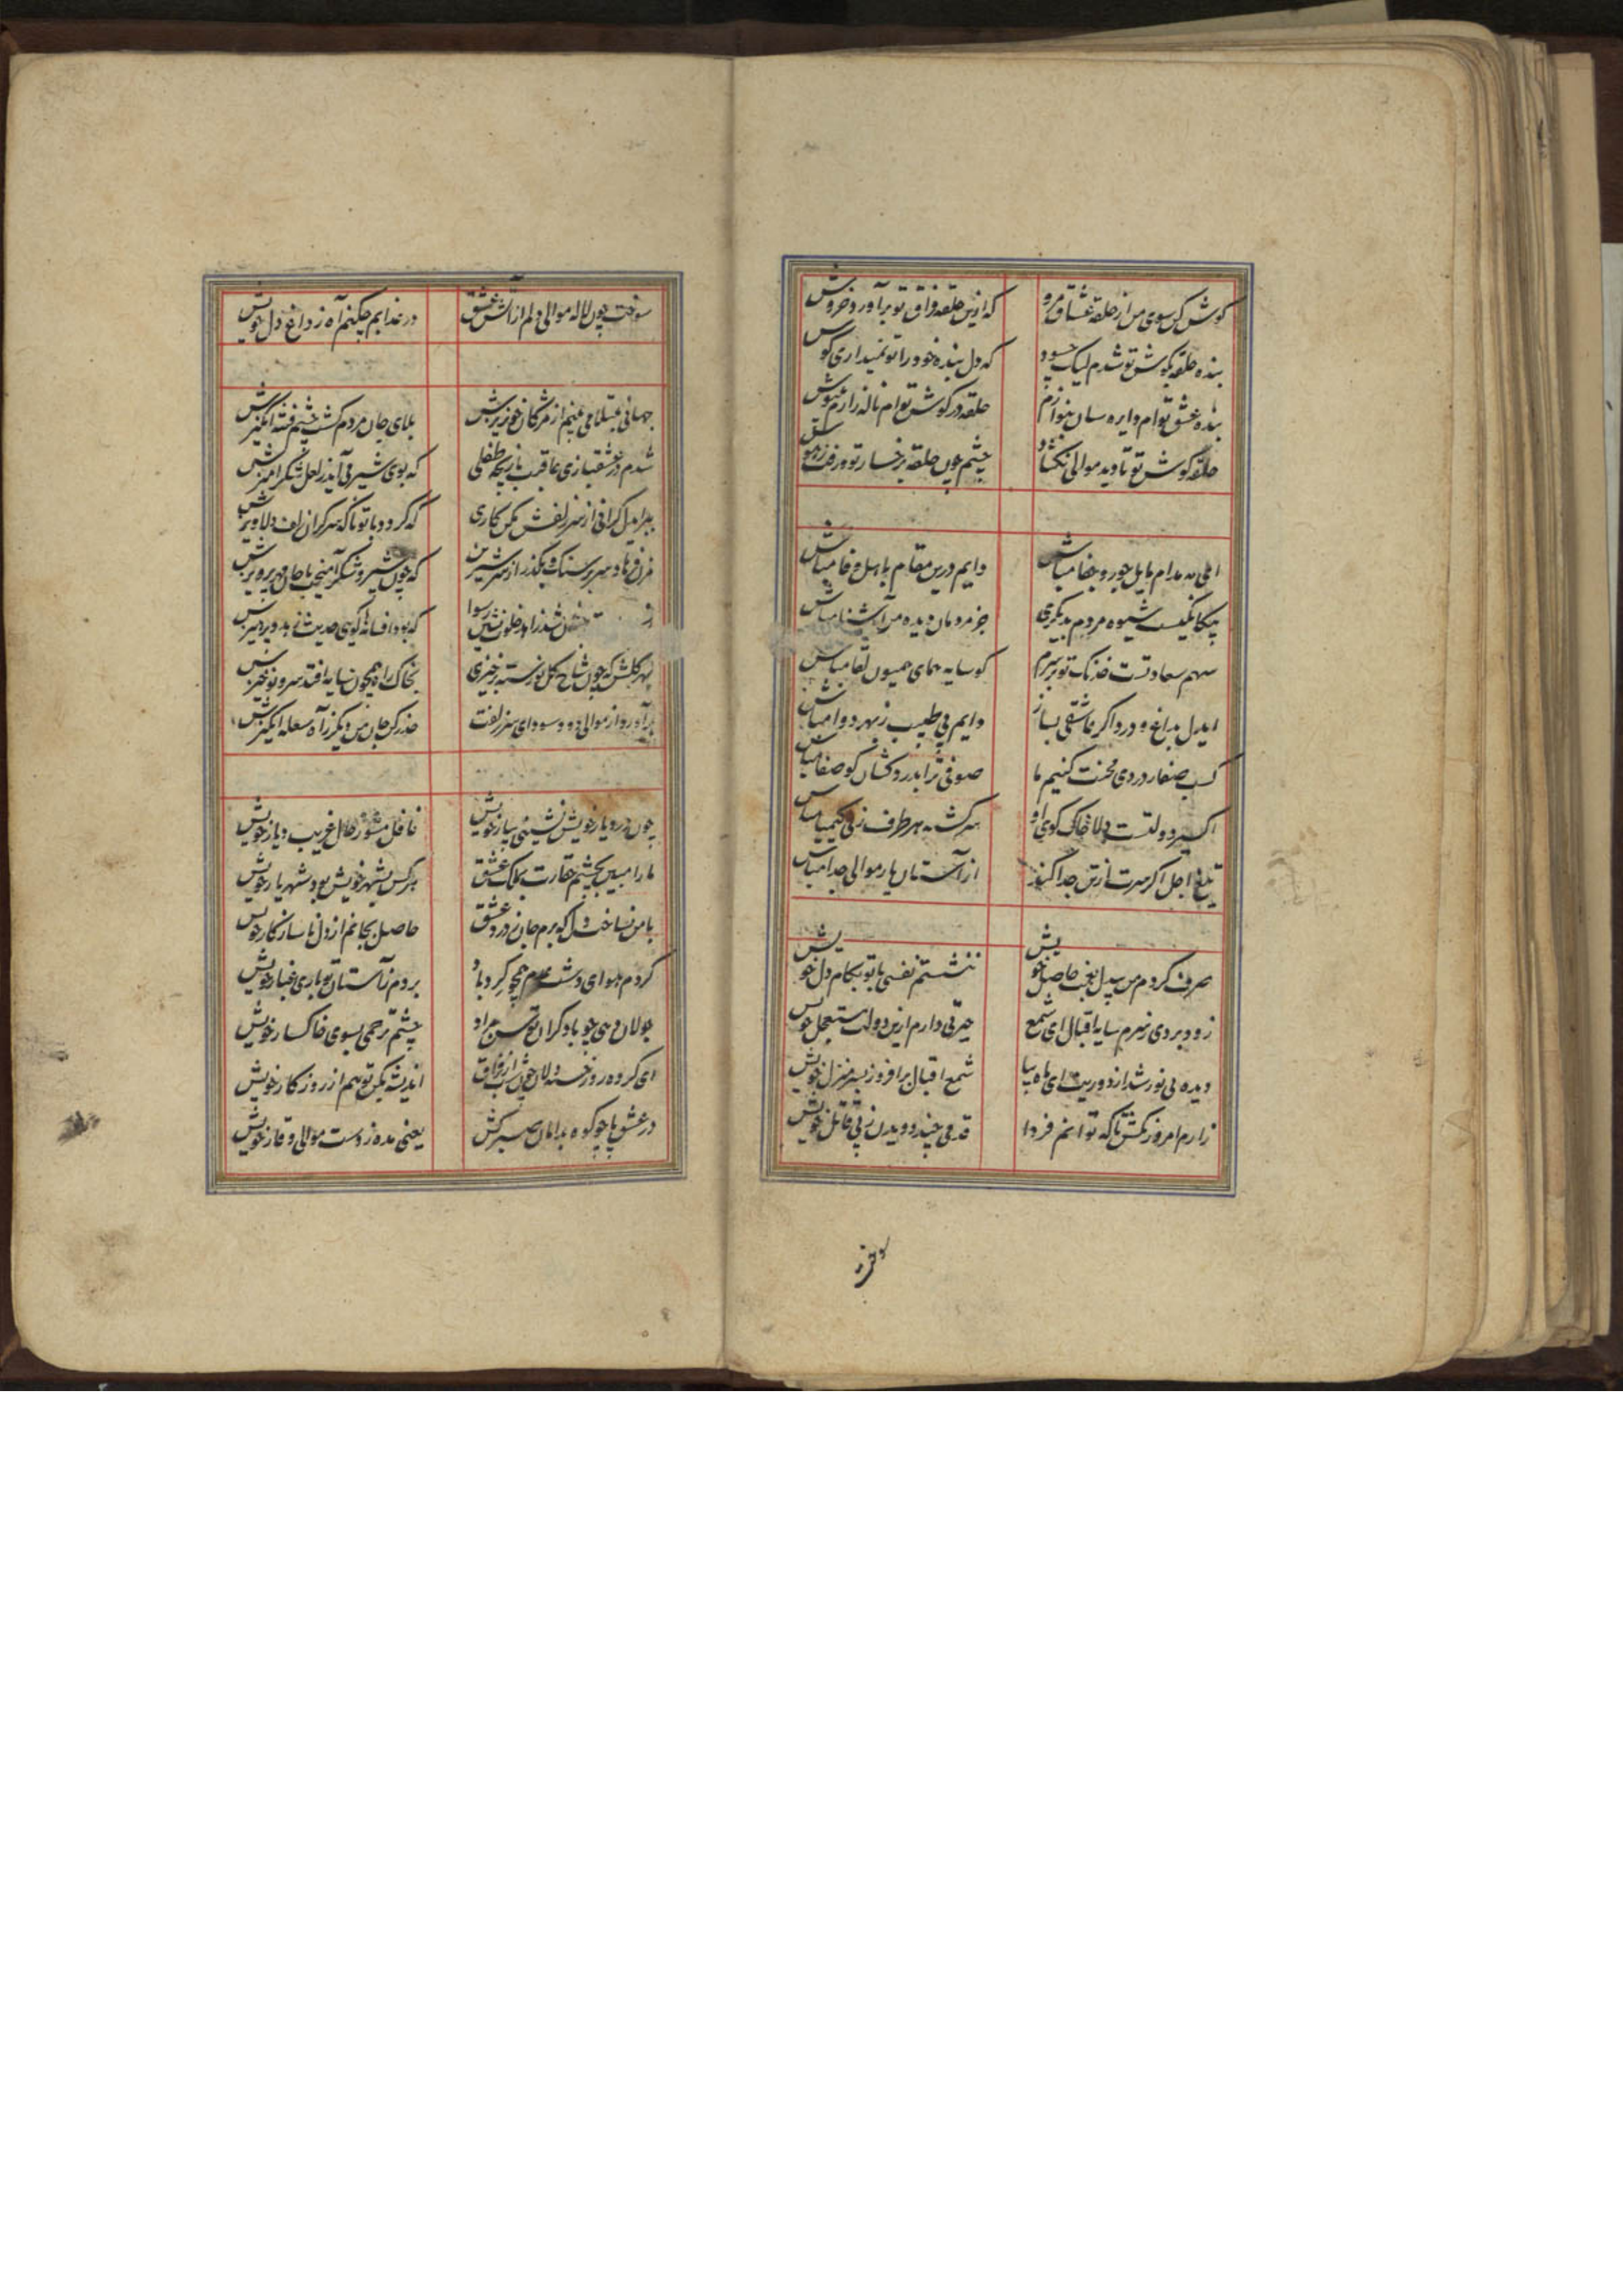 کوش کن سوی من از حلقه عشاق مرو که ازین حلقه فراق تو برآورد خروش
بنده حلقه بکوش تو شدم لیک چسود که دل بنده خود را تو نمیداری کوش
بنده عشق توام دایره سان بنوازم حلقه در کوش توام ناله زارم بنیوش
حلقه کوش تو تا دید موالی نکشاد چشم چون حلقه برخسار تو
ای مه مدام مایل جور و جفا مباش دایم درین مقام باهل وفا مباش
بیکانکیست شیوه مردم بدیکری جز مردمان دیده من آشنا مباش
سهم سعادتست خدنک تو بر سرم کو سایه همای همیون لقا مباش
ایدل بداغ و درد اکر عاشقی بساز دایم پی طبیب ز بهر دوا مباش
کسب صفا ز دردی محنت کنیم ما صوفی ترا بدردکشان کو صفا مباش
اکسیر دولتست دلا خاک کوی او سرکشته هر طرف ز پی کیمیا مباش
تیغ اجل اکر سرت از تن جدا کند از آستان یار موالی جدا مباش
صرف کردم من بیدل بغمت حاصل خویش ننشستم نفسی با تو بکام دل خویش
زود بردی ز سرم سایه اقبال ای شمع حیرتی دارم ازین دولت مستعجل خویش
دیده بی نور شد از دوریت ای ماه بیا شمع اقبال برافروز بسر منزل خویش
زارم امروز بکش تا که توانم فردا قدمی چند دویدن ز پی قاتل خویش
سوخت چون لاله موالی دلم از آتش عشق در عذابم چکنم آه ز داغ دل خویش
جهانی مبتلا می بینم از مژکان خونریزش بلای جان مردم کشت چشم فتنه انکیزش
شدم در عشقبازی عاقبت بازیچه طفلی که بوی شیر می آید ز لعل شکرآمیزش
ببر ایدل کرانی از سر زلفش مکن کاری که کردد با تو ناکه سرکران زلف دلاویزش
مزن فرهاد سر بر سنک و بکذر از سر شیرین که چون شیر و شکر آمیخت با جان مهر پرویزش
شد زاهد خلوت نشین رسوا که بود افسانه کویی حدیث زهد و پرهیزش
بهر کلشن که چون شاخ کل نورسته برخیزی بخاک راه همچون سایه افتد سرو نوخیزش
برآورد از موالی دود سودای سر زلفت حذر کن جان من دیکر ز آه شعله انکیزش
چون در دیار خویش نشینی بیار خویش غافل مشو ز حال غریب دیار خویش
ما را مبین بچشم حقارت بملک عشق هر کس بشهر خویش بود شهریار خویش
با من نساخت دل که برم جان ز درد عشق حاصل بجانم از دل ناسازکار خویش
کردم هوای دشت عدم همچو کردباد بردم ز آستان تو باری غبار خویش
جولان دهی چو بادکران توسن مراد چشم ترحمی بسوی خاکسار خویش
ای کرده روز خسته دلان چون شب از فراق اندیشه بکن تو هم از روزکار خویش
در عشق پا چو کوه بدامان صبر کش یعنی مده ز دست موالی وقار خویش